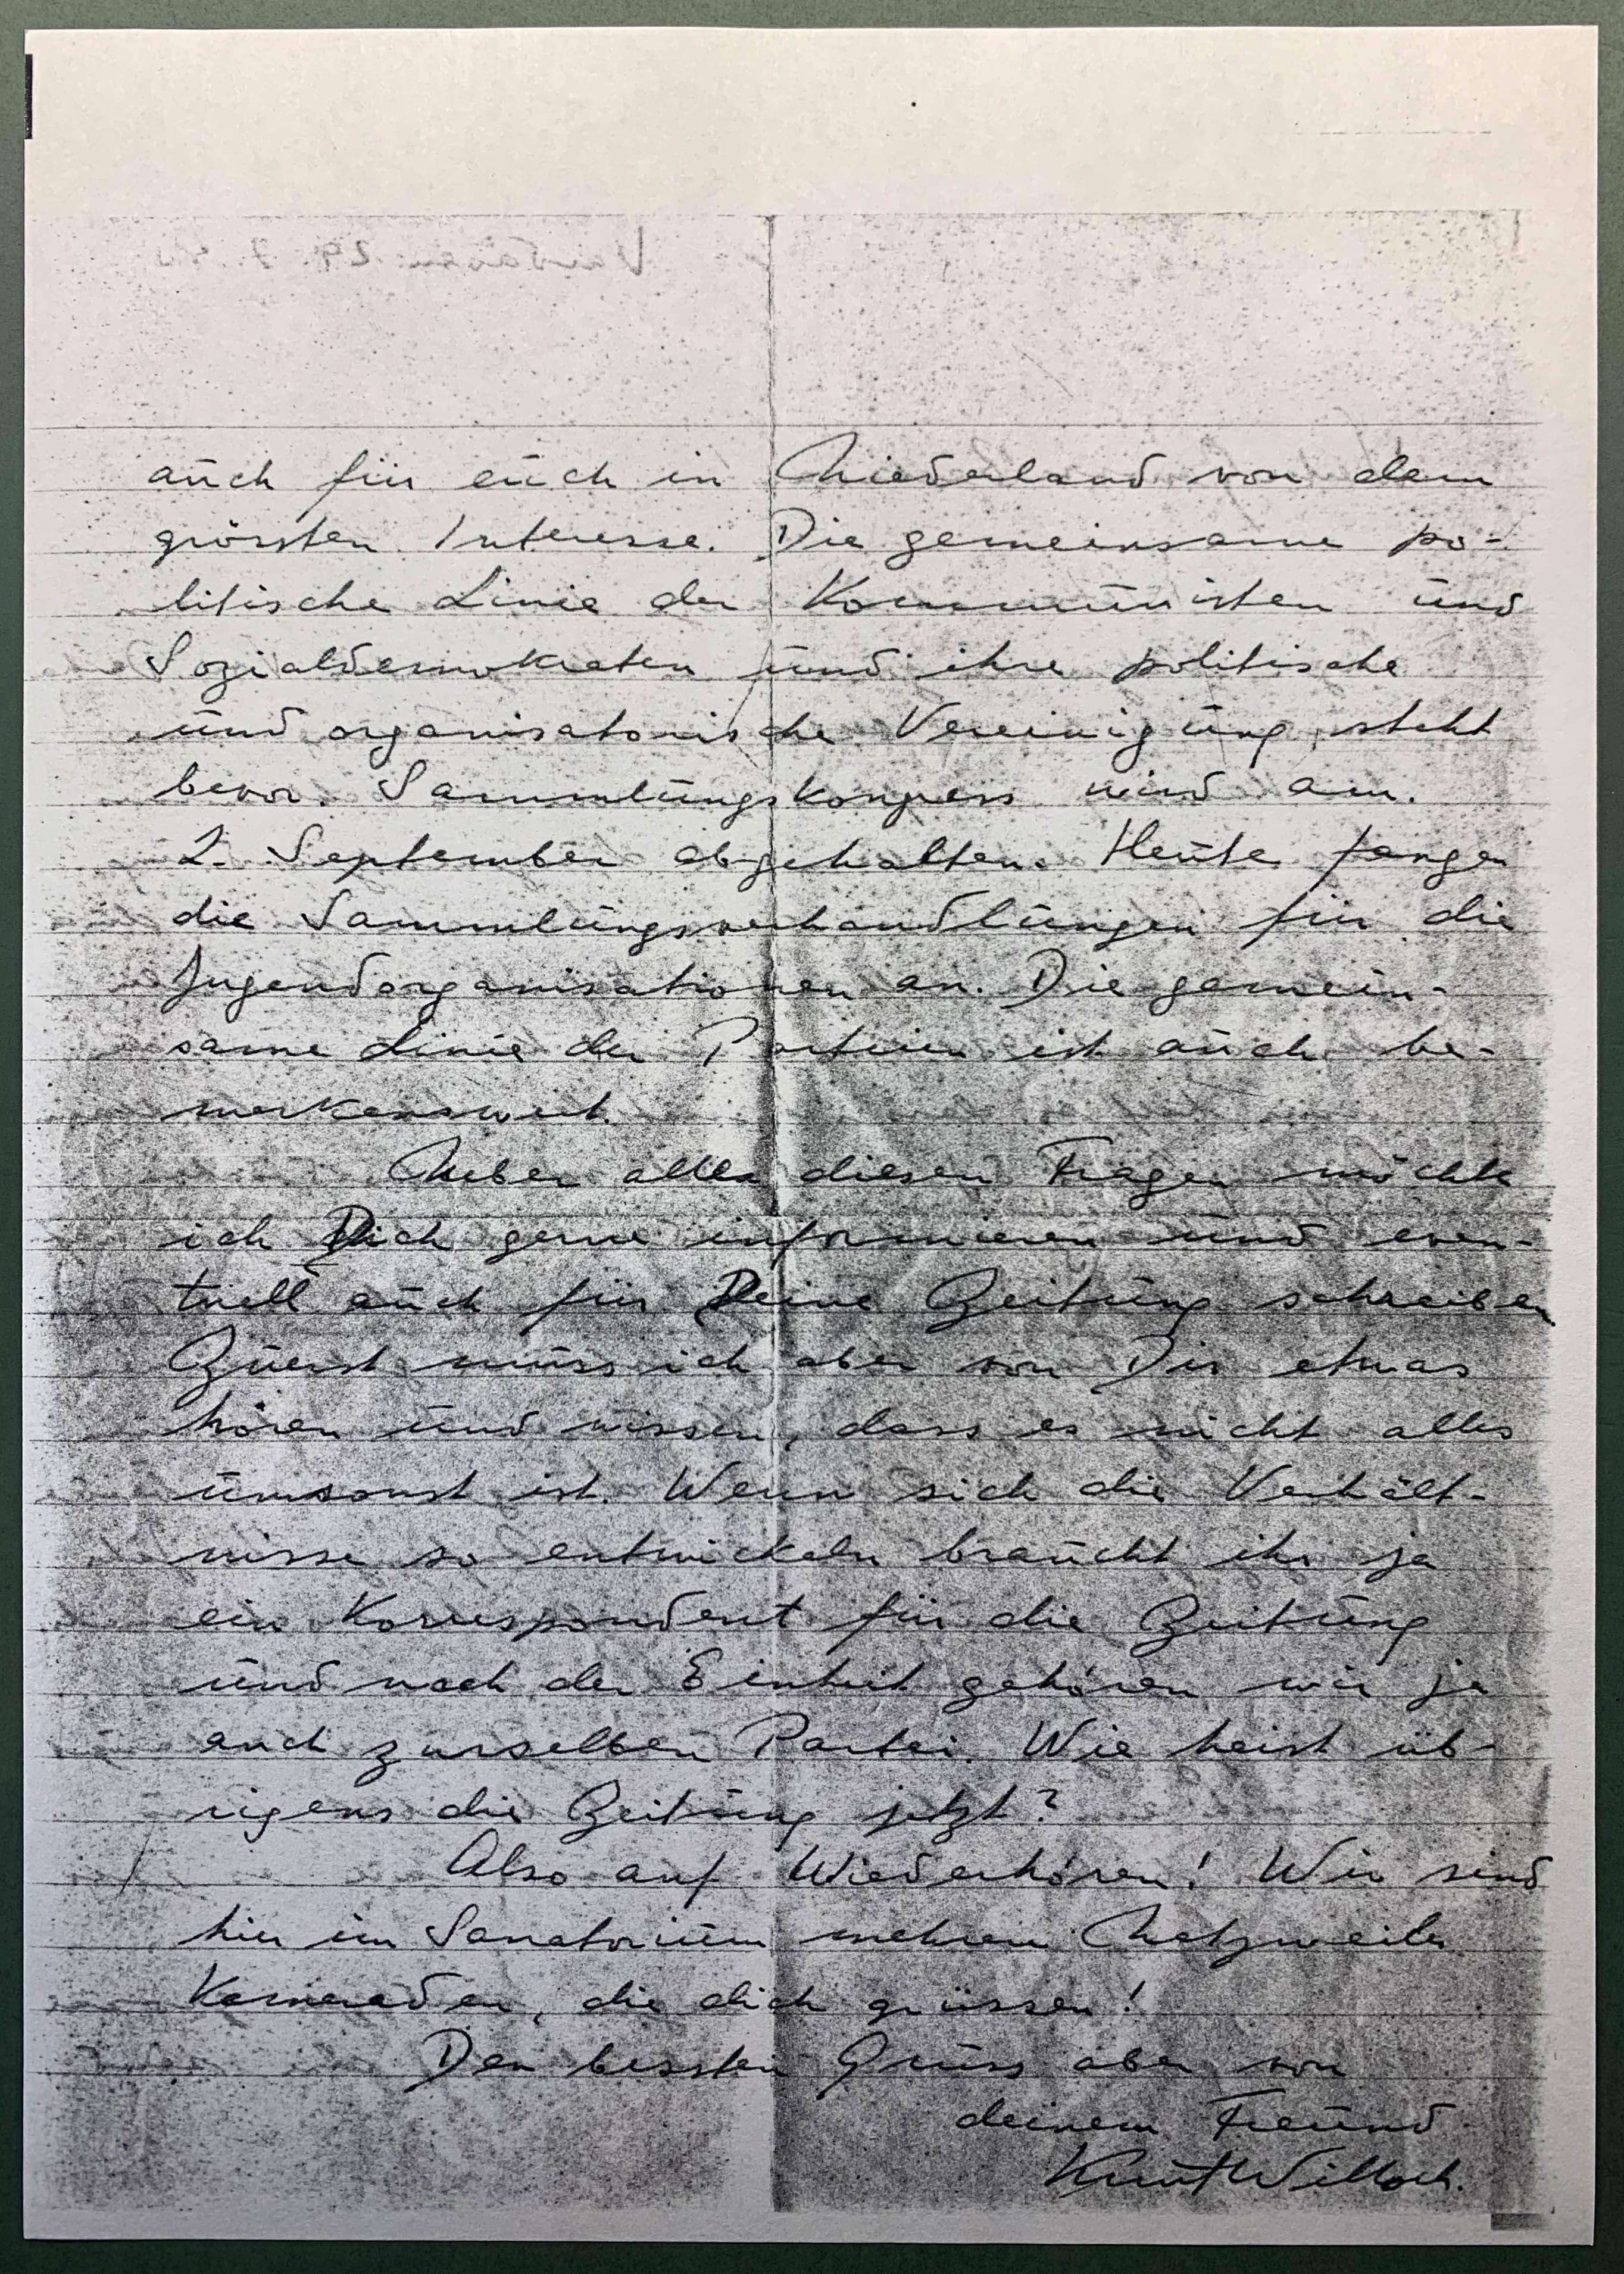 auch für euch in Niederland von dem
grössten Interesse. Die gemeinsame po-
litische Linie der Kommunisten und
Sozialdemokraten und ihre politische
und organisatorische Vereinigung steht
bevor. Sammlungskongress wird am.
2. September abgehalten. Heute fangen
die Sammlungsverhandlungen für die
Jugendorganisationen an. Die gemein-
same Linie der Parteien ist auch be-
merkenswert.
Ueber allen diesen Fragen möchte
ich Dich gerne informieren und even-
tuell auch für Deine Zeitung schreiben
Zuerst muss ich aber von Dir etwas
hören und wissen, dass es nicht alles
umsonst ist. Wenn sich die Verhält-
nisse so entwickeln braucht ihr ja
ein Korrespondent für die Zeitung
und nach der Einheit gehören wir ja
auch zurselben Partei. Wie heist üb-
rigens die Zeitung jetzt?
Also auf Wiederhören! Wir sind
hier im Sanatorium mehrere Natzweiler
Kameraden, die dich grüssen!
Den bessten Gruss aber von
deinem Freund
Knut Willoch.